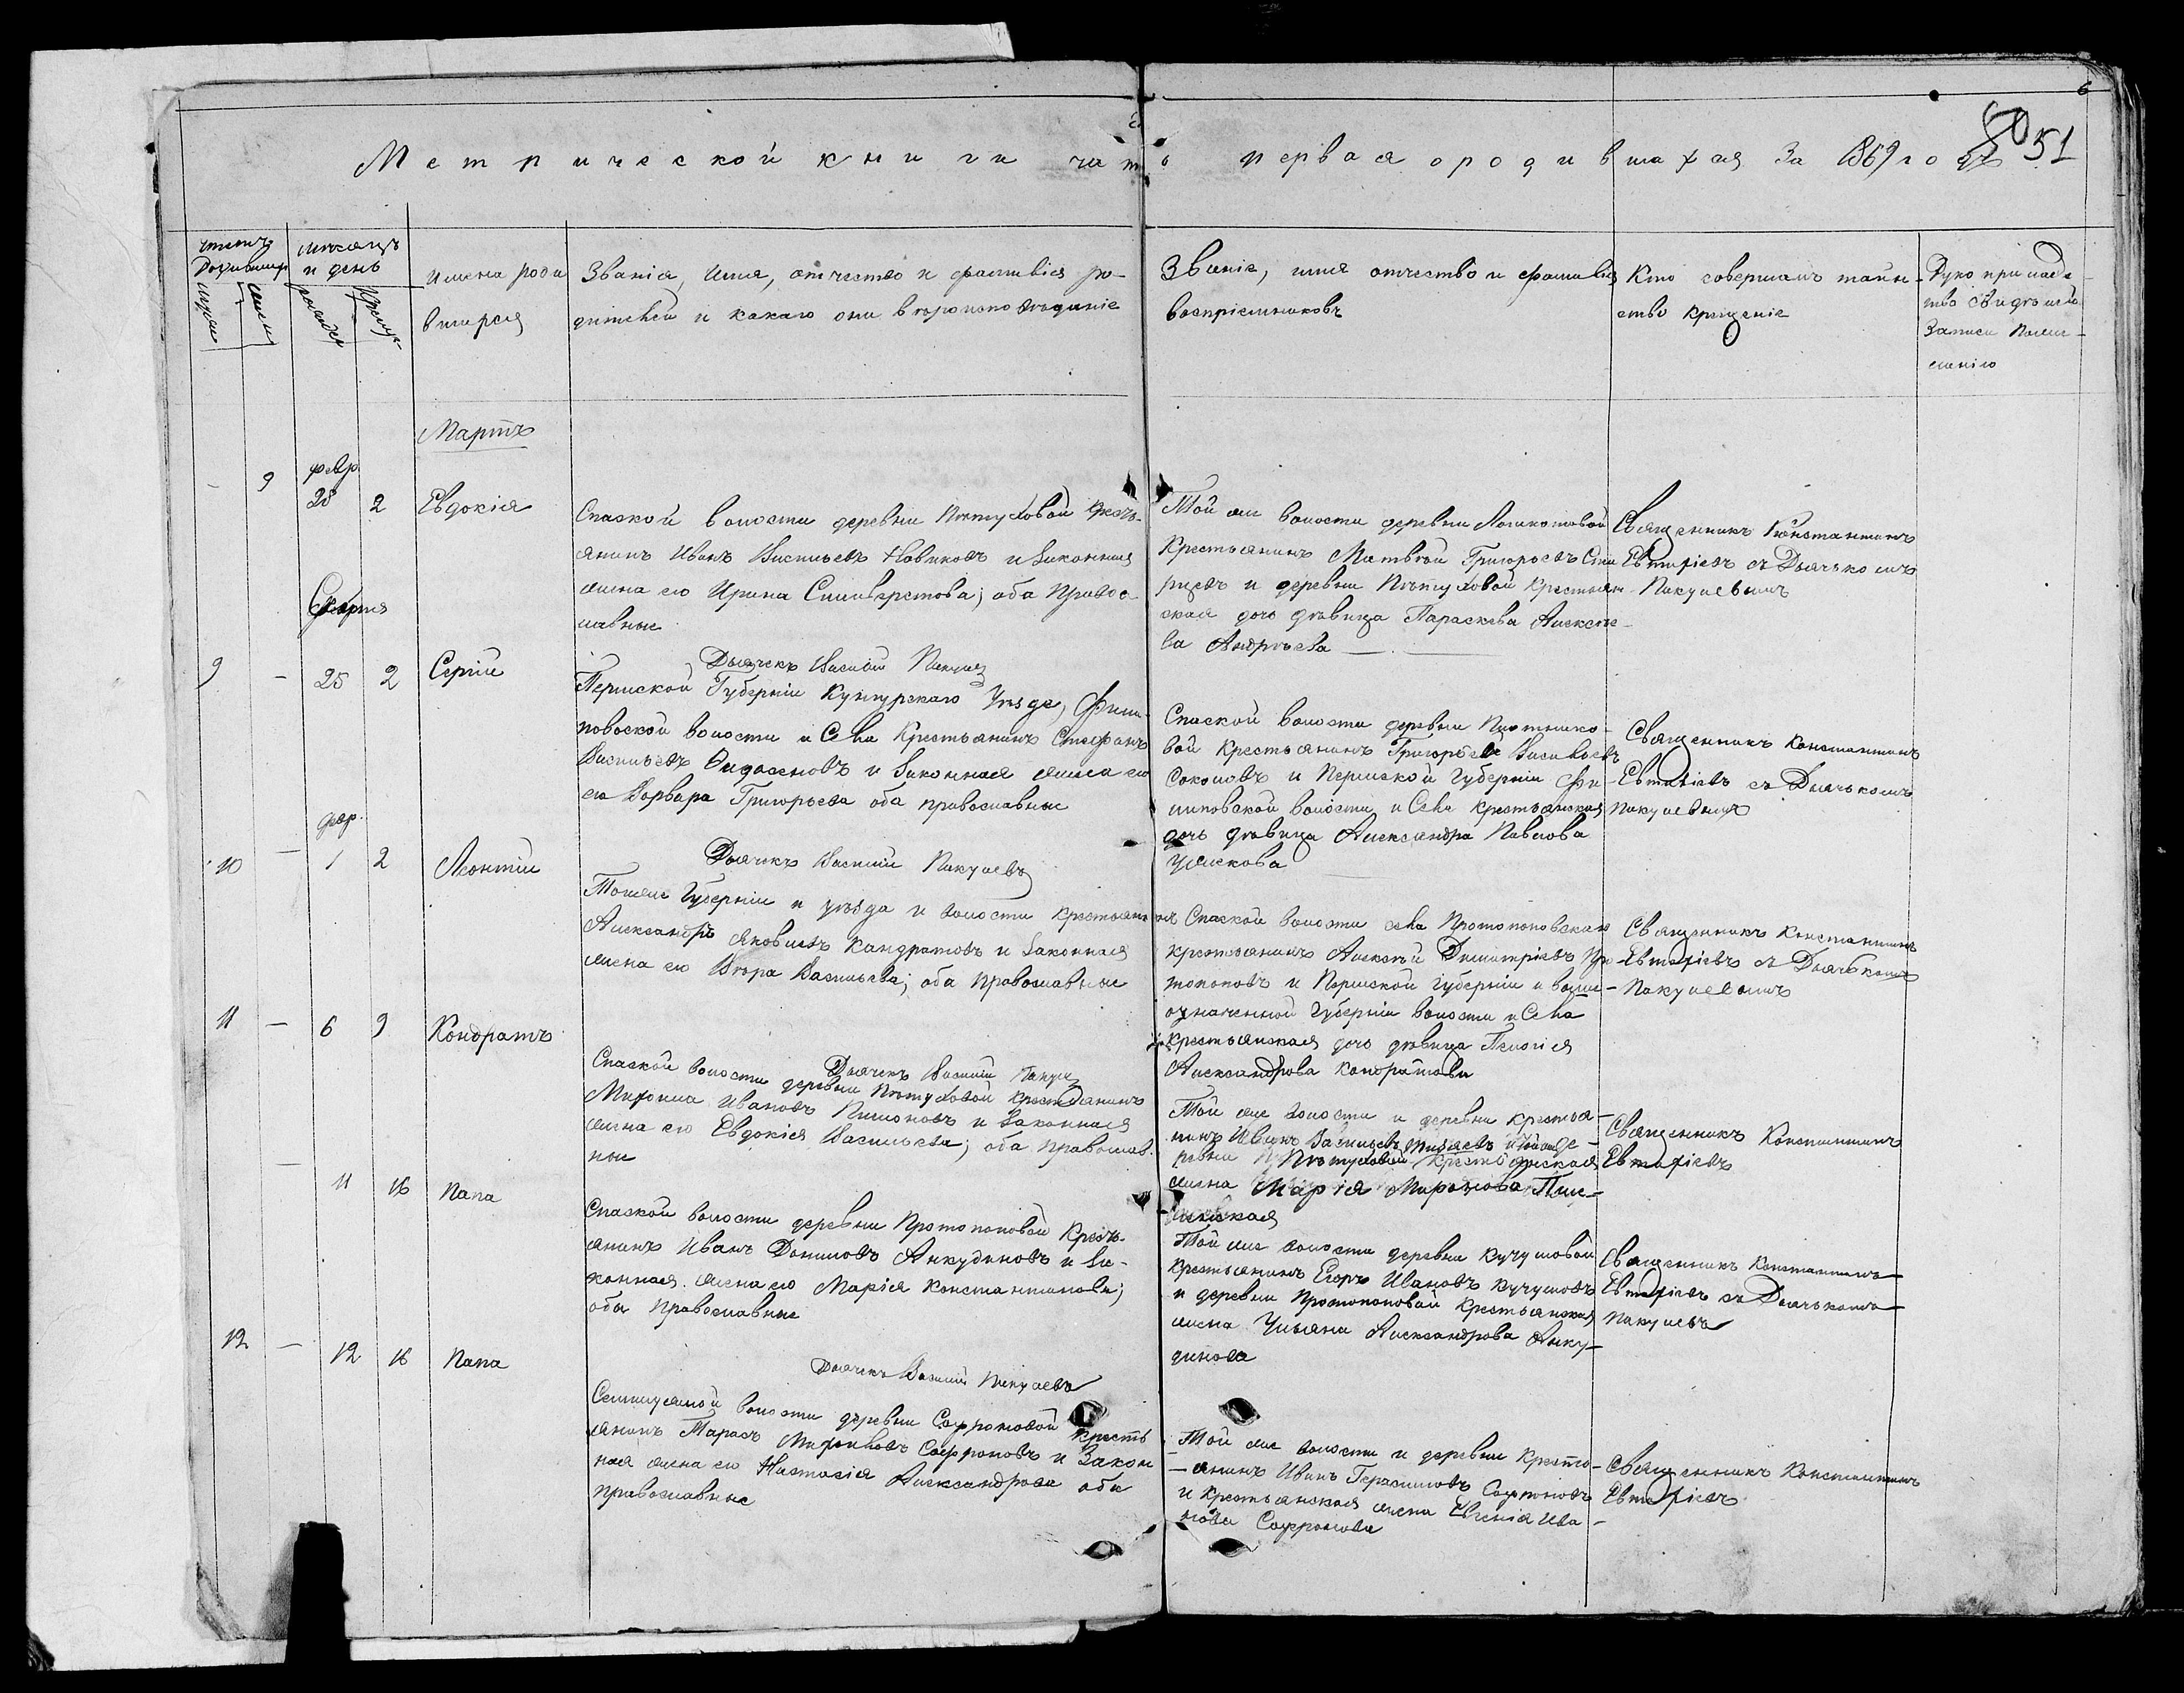 6
80 51
Метрической книги час первая о родившахся за 1869 годъ
мѣсяцъ
и день
имена роди
вшихся
Званія, имя, отчество и фамилія ро-
дителей и какаго они вѣроисповѣданіе
Званіе, имя отчество и фамилія
воспріемниковъ
Кто совершалъ таин-
ство крещеніе
Записи
Мартъ
- 9
февр.
28 2 Евдокія
Спаской волости деревни Пѣтуховой крест-
янинъ Иванъ Васильевъ Новиковъ и законная
жена его Ирина Сильверстова; оба Правос-
лавные
Той же волости деревни
Крестьянинъ Матвѣй Григорьевъ
и деревни Пѣтуховой крестьян-
ская дочь дѣвица Параскева Алексѣе-
ва Андрѣева
Священникъ Константинъ
Евтихіевъ съ Дьячькомъ
Пакулевымъ
Дьячекъ Василій
9 - 25 2 Сергій
Пермской Губерніи Кунгурскаго Уѣзда, Фили-
повской волости и Села Крестьянинъ Стефанъ
Васильевъ и законная жена его
его Варвара Григорьева оба православные
Спаской волости деревни Плотнико-
вой Крестьянинъ Григорьевъ Васильевъ
Соколовъ и Пермской Губерніи Фи-
липовской волости и Села крестьянская
дочь дѣвица Александра Павлова
Священникъ Константинъ
Евтихіевъ съ Дьячькомъ
Пакулевымъ
Дьячекъ Василій Пакулевъ
10 - 1 2 Леонтій
Тоежъ Губерніи и уѣзда и волости крестьянинъ
Александръ Яковлевъ Кандратовъ и законная
жена его Вѣра Васильева; оба православные
Спаской волости села Протопоповскаго
крестьянинъ Алексѣй Димитріевъ Про-
топоповъ и Пермской Губерніи и выше-
означенной Губерніи волости и Села
крестьянская дочь дѣвица Пелагія
Александрова Кондратова
Священникъ Константинъ
Евтихіевъ съ Дьячькомъ
Пакулевымъ
Дьячекъ Василій
11 - 6 9 Кондратъ
Спаской волости деревни Пѣтуховой крестьянинъ
Иванов Пимоновъ и законная
жена его Евдокія Васильева; оба православ
ные
Той же волости и деревни крестья-
нинъ Иванъ Васильевъ и той же де-
ревни Пѣтуховой крестьянская
жена Марія
Священникъ Константинъ
Евтихіевъ
- 11 16 Папа
Спаской волости деревни Протопоповой Крест-
янинъ Иванъ Даниловъ Анкудиновъ и за-
конная жена его Марія Константинова;
оба православные
Той же волости деревни Кучумовой
крестьянинъ Егоръ Ивановъ Кучумовъ
и деревни Протопоповой крестьянская
жена Ульяна Александрова Анку-
динова
Священникъ Константинъ
Евтихіевъ съ Дьячькомъ
Пакулевъ
Дьячекъ Василій Пакулевъ
12 - 12 16 Папа
волости деревни Софроновой Кресть
янинъ Тарасъ Софроновъ и Закон
ная жена его Настасія Александрова оба
православные
Той же волости и деревни Кресть-
янинъ Иванъ Герасимовъ Софроновъ
и крестьянская жена Евгенія Ива-
нова Софронова
Священникъ Константинъ
Евтихіевъ